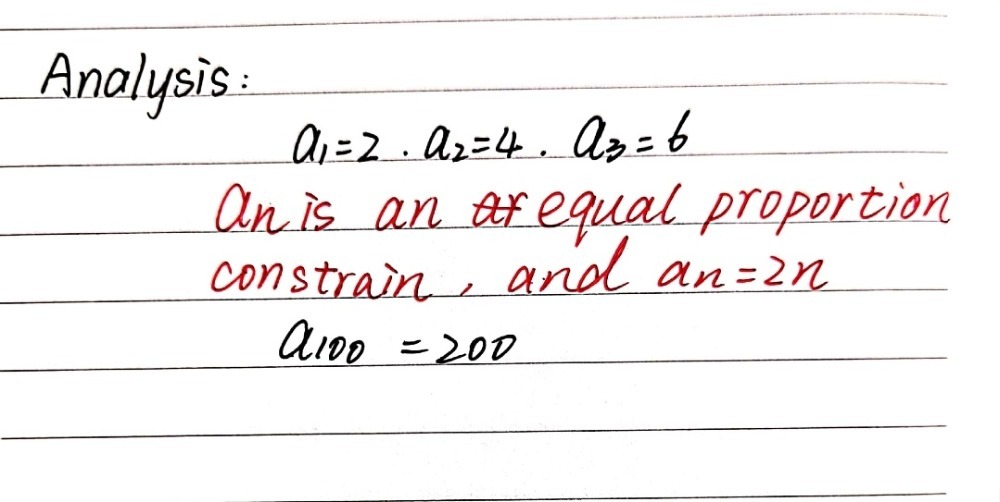 Analysis:
a₁=2 . a₂=4 . a₃=6
an is an equal proportion
constrain, and an=2n
a₁₀₀ =200